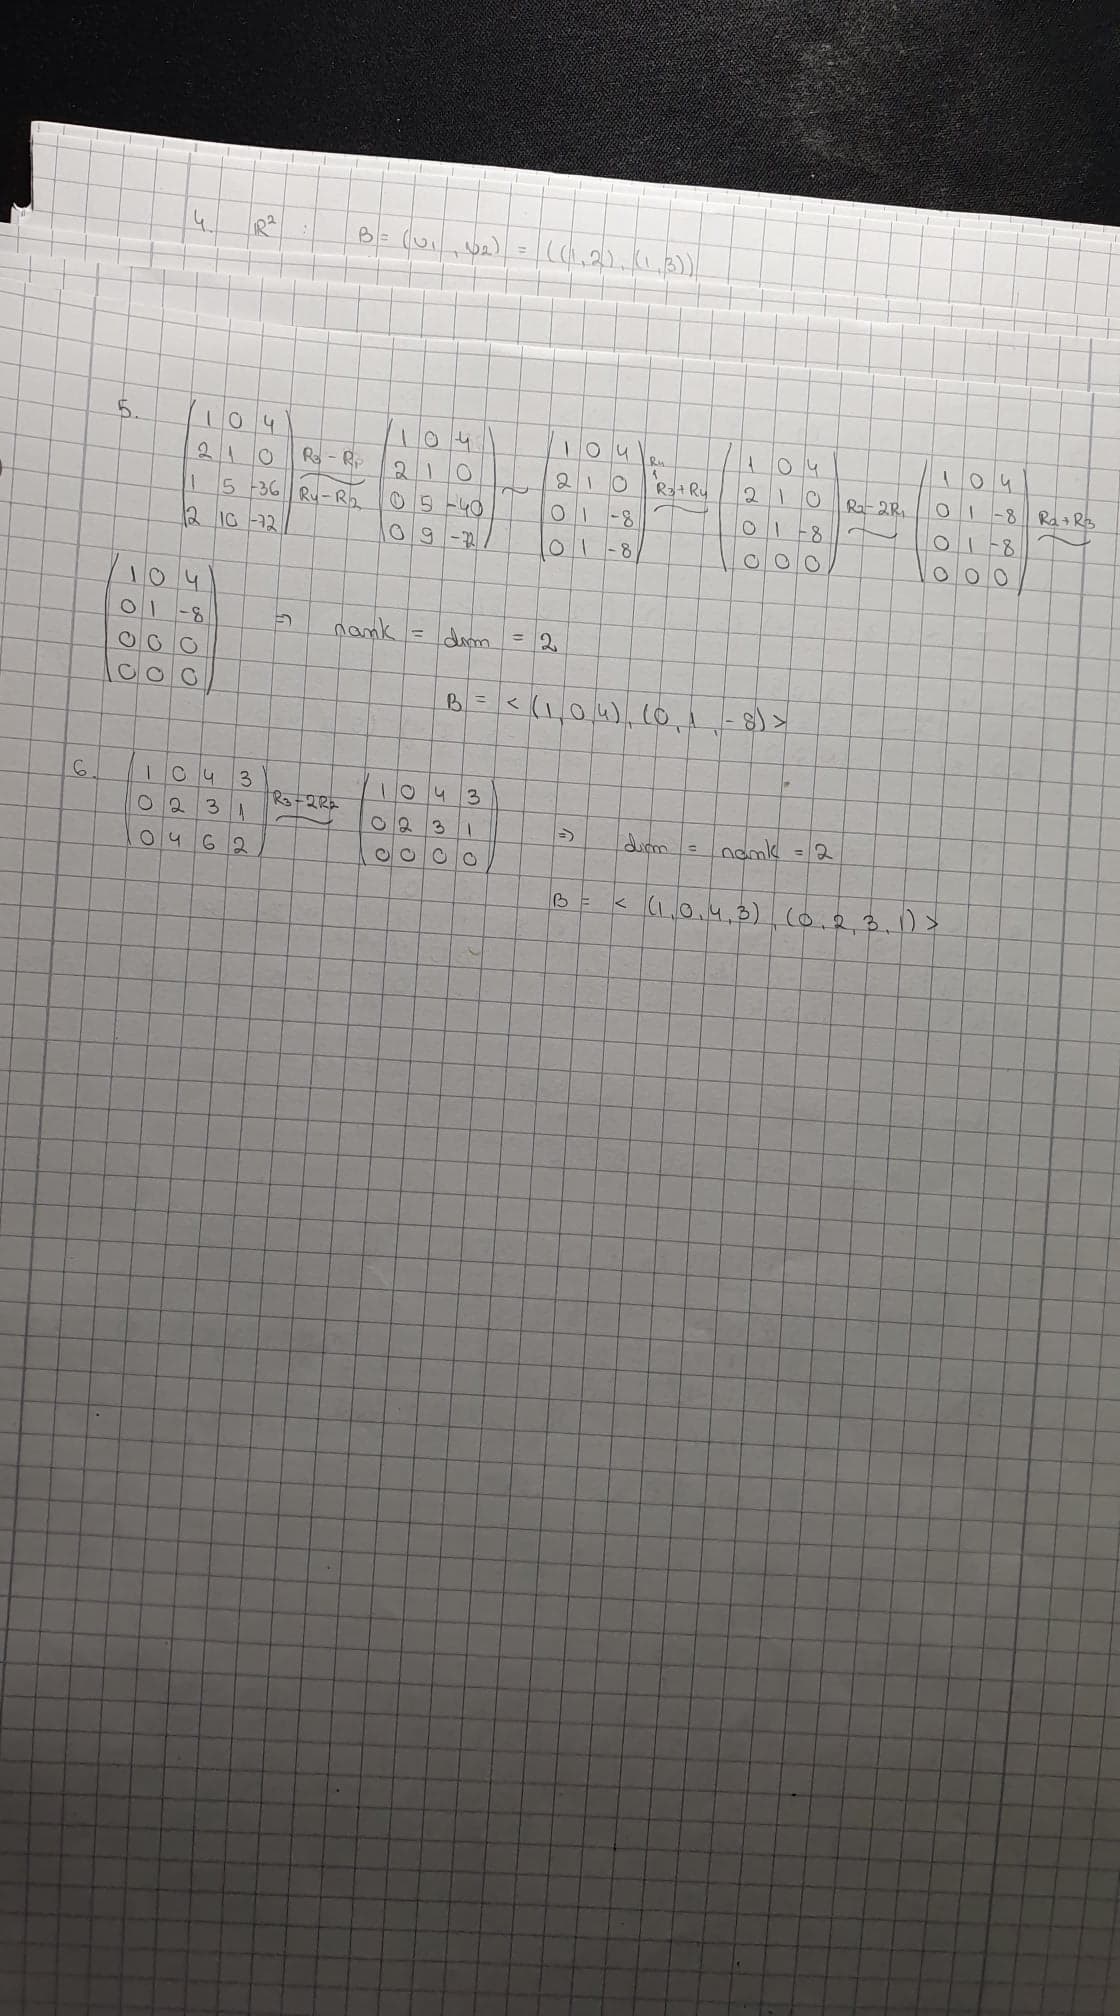 4. R² : B = (v₁, v₂) = ((1,2), (1,3))
5. (1 0 4 / 2 1 0 / 1 5 -36 / 2 10 -72) R₃-R₁ R₄-R₂ ~ (1 0 4 / 2 1 0 / 0 5 -40 / 0 9 -72) ~ (1 0 4 / 2 1 0 / 0 1 -8 / 0 1 -8) R₃+R₄ ~ (1 0 4 / 2 1 0 / 0 1 -8 / 0 0 0) R₂-2R₁ ~ (1 0 4 / 0 1 -8 / 0 1 -8 / 0 0 0) R₂+R₃ ~
(1 0 4 / 0 1 -8 / 0 0 0 / 0 0 0) => rank = dim = 2
B = <(1,0,4), (0,1,-8)>
6. (1 0 4 3 / 0 2 3 1 / 0 4 6 2) R₃-2R₂ ~ (1 0 4 3 / 0 2 3 1 / 0 0 0 0) => dim = rank = 2
B = <(1,0,4,3), (0,2,3,1)>